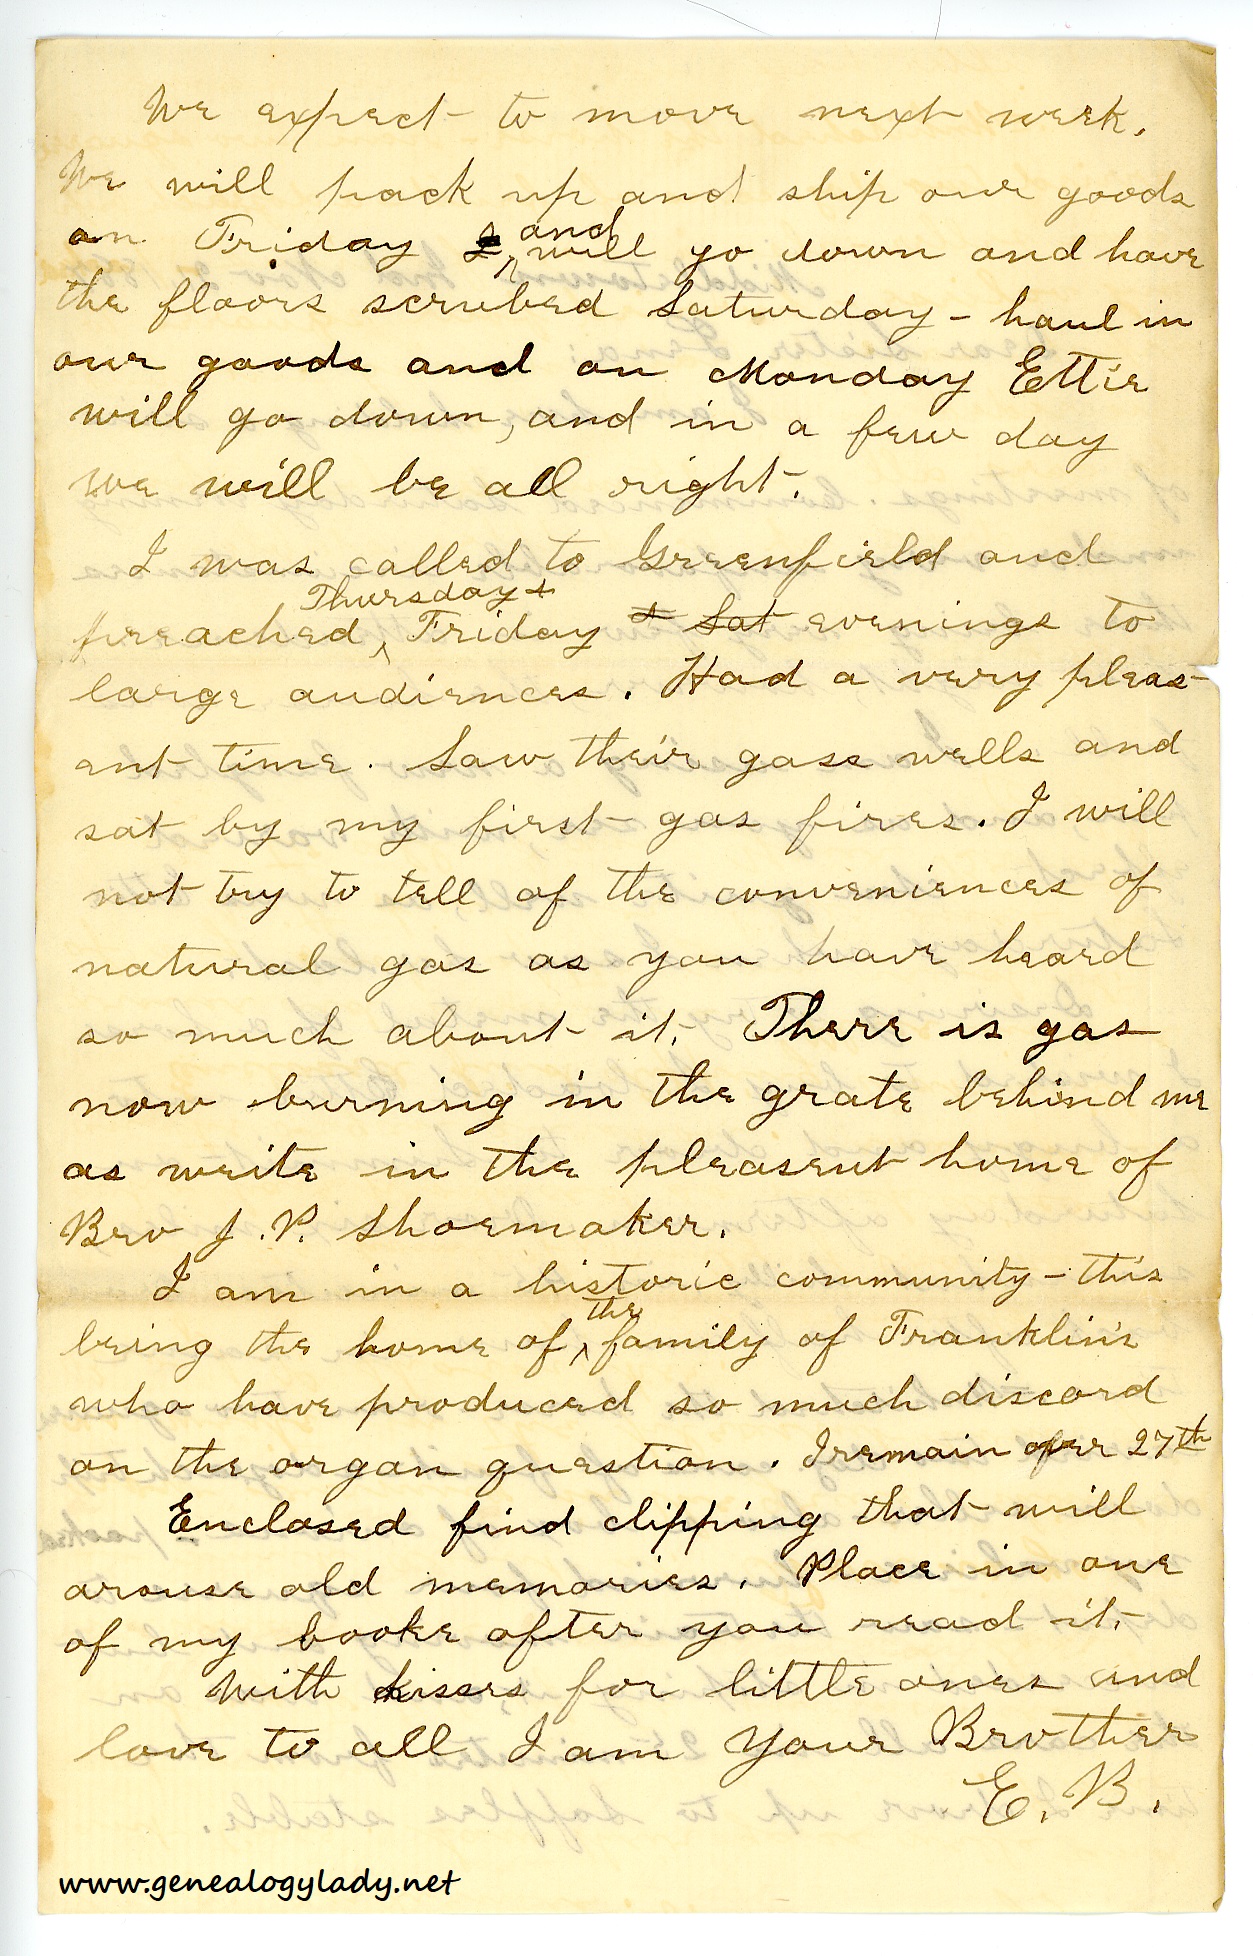 We expect to move next week.
We will pack up and ship our goods
on Friday & and will go down and have
the floors scrubed Saturday - haul in
our goods and on Monday Ettie
will go down, and in a few day
we will be all right.
I was called to Greenfield and
preached Thursday + Friday + Sat evenings to
large audiences. Had a very pleas-
ent time. Saw their gass wells and
sat by my first gas fires. I will
not try to tell of the conveniences of
natural gas as you have heard
so much about it. There is gas
now burning in the grate behind me
as write in the pleasent home of
Bro J. P. Shoemaker.
I am in a historic community - this
being the home of the family of Franklin's
who have produced so much discord
on the organ question. I remain over 27th
Enclosed find clipping that will
arouse old memories. Place in one
of my books after you read it.
With kisses for little ones and
love to all I am your Brother
E. B.
www.genealogylady.net